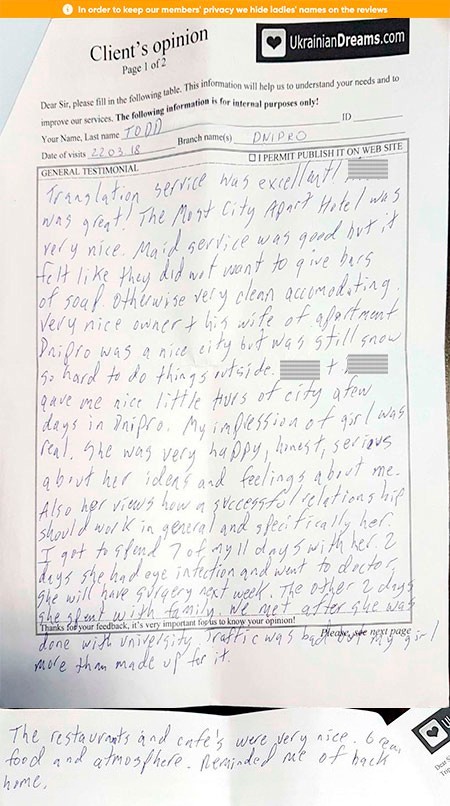 In order to keep our members' privacy we hide ladies' names on the reviews
Client's opinion
Page 1 of 2
UkrainianDreams.com
Dear Sir, please fill in the following table. This information will help us to understand your needs and to
improve our services. The following information is for internal purposes only!
Your Name, Last name TODD ID
Date of visits 22.03.18 Branch name(s) DNIPRO
GENERAL TESTIMONIAL
I PERMIT PUBLISH IT ON WEB SITE
Translation service was excellent!
was great! The Most City Apart Hotel was
very nice. Maid service was good but it
felt like they did not want to give bars
of soap. Otherwise very clean accomodating.
Very nice owner + his wife of apartment
Dnipro was a nice city but was still snow
so hard to do things outside. +
gave me nice little turs of city a few
days in Dnipro. My impression of girl was
real. She was very happy, honest, serious
about her ideas and feelings about me.
Also her views how a successful relationship
should work in general and specifically her.
I got to spend 7 of my 11 days with her. 2
days she had eye infection and went to doctor,
she will have surgery next week. The other 2 days
she spent with family. We met after she was
Thanks for your feedback, it's very important for us to know your opinion!
Please, see next page
done with university. Traffic was bad but my girl
more than made up for it.
The restaurants and cafe's were very nice. Great
food and atmosphere. Reminded me of back
home.
U
Dear S